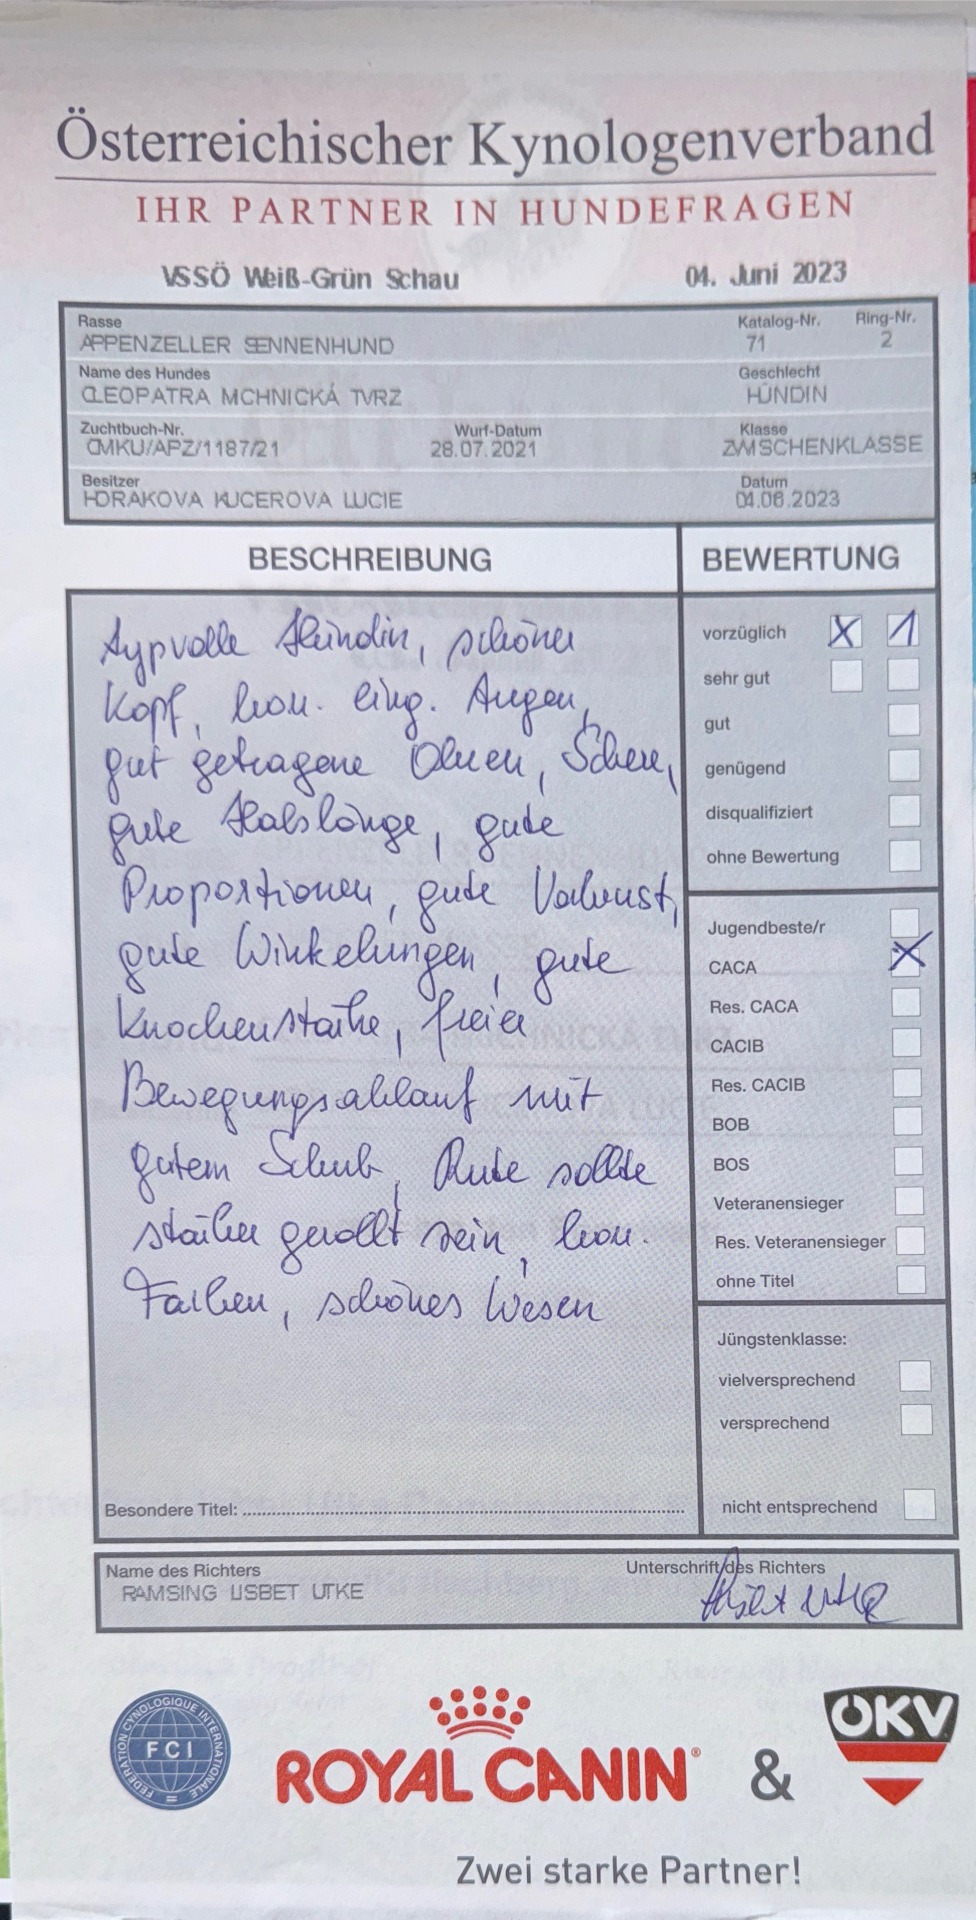 Österreichischer Kynologenverband
IHR PARTNER IN HUNDEFRAGEN
VSSÖ Weiß-Grün Schau 04. Juni 2023
Rasse Katalog-Nr. Ring-Nr.
APPENZELLER SENNENHUND 71 2
Name des Hundes Geschlecht
CLEOPATRA MCHNICKÁ TVRZ HÜNDIN
Zuchtbuch-Nr. Wurf-Datum Klasse
CMKU/APZ/1187/21 28.07.2021 ZWISCHENKLASSE
Besitzer Datum
HORAKOVA KUCEROVA LUCIE 04.06.2023
BESCHREIBUNG
Typvolle Hündin, schöner
Kopf, korr. eing. Augen,
gut getragene Ohren, Schere,
gute Halslänge, gute
Proportionen, gute Vorbrust,
gute Winkelungen, gute
Knochenstärke, freier
Bewegungsablauf mit
gutem Schub, Rute sollte
stärker gerollt sein, korr.
Farben, schönes Wesen
Besondere Titel:
BEWERTUNG
vorzüglich X 1
sehr gut
gut
genügend
disqualifiziert
ohne Bewertung
Jugendbeste/r
CACA X
Res. CACA
CACIB
Res. CACIB
BOB
BOS
Veteranensieger
Res. Veteranensieger
ohne Titel
Jüngstenklasse:
vielversprechend
versprechend
nicht entsprechend
Name des Richters Unterschrift des Richters
RAMSING LISBET UTKE Lisbet Utke
FEDERATION CYNOLOGIQUE INTERNATIONALE
FCI
ROYAL CANIN® & ÖKV
Zwei starke Partner!